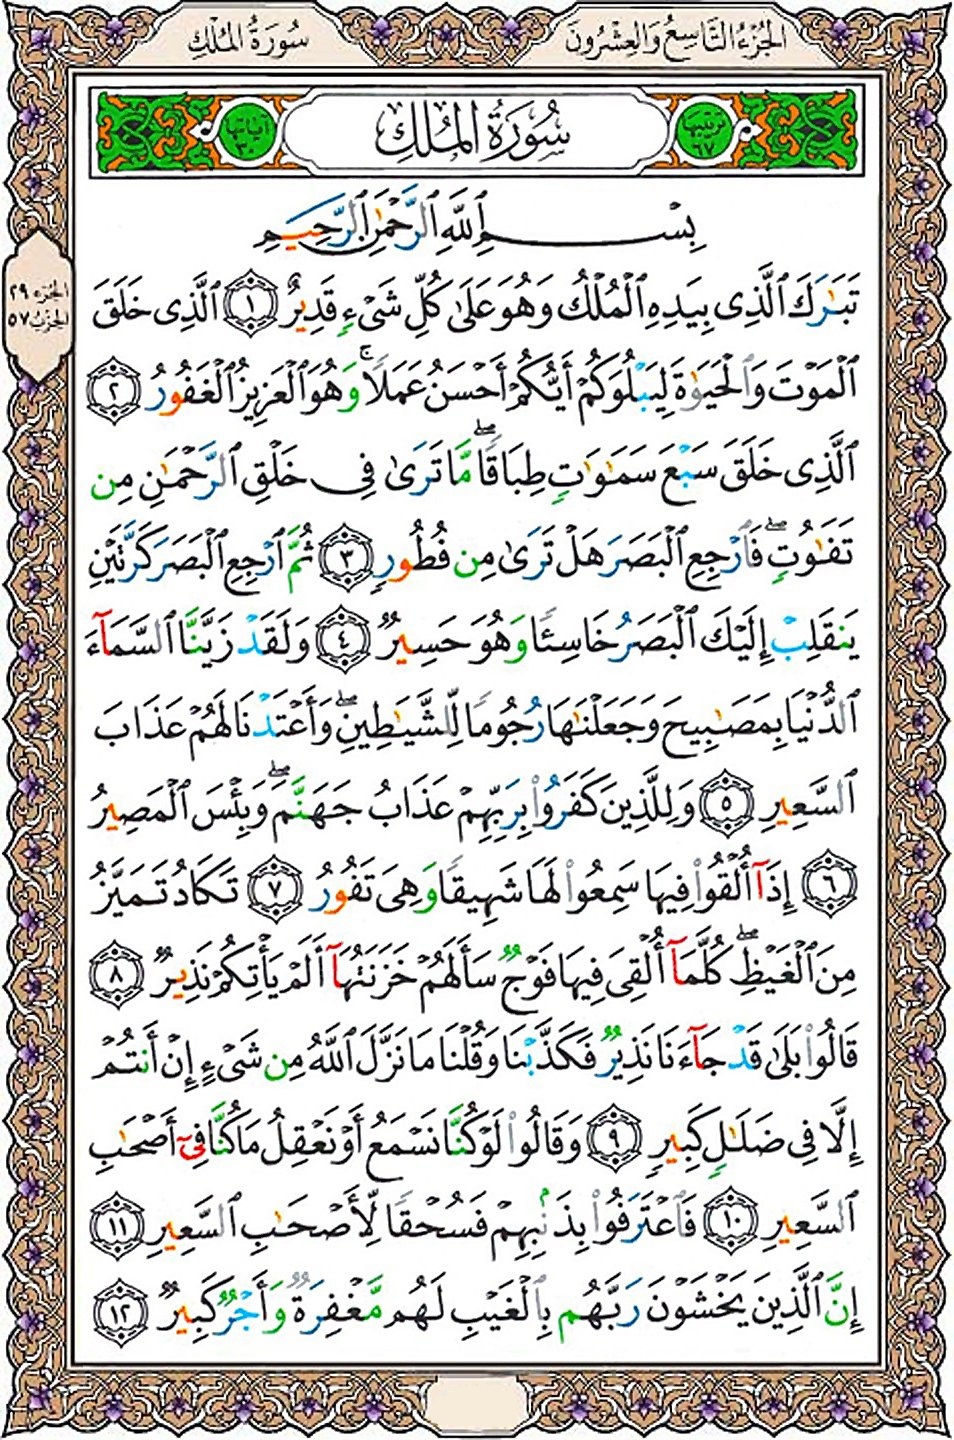 سُورَةُ المُلْكِ
الجُزْءُ التَّاسِعُ وَالعِشْرُونَ
ترتيبها ٦٧
سُورَةُ المُلْكِ
آياتها ٣٠
بِسْمِ ٱللَّهِ ٱلرَّحْمَٰنِ ٱلرَّحِيمِ
الجزء ٢٩
الحزب ٥٧
تَبَٰرَكَ ٱلَّذِى بِيَدِهِ ٱلْمُلْكُ وَهُوَ عَلَىٰ كُلِّ شَىْءٍ قَدِيرٌ ١ ٱلَّذِى خَلَقَ
ٱلْمَوْتَ وَٱلْحَيَوٰةَ لِيَبْلُوَكُمْ أَيُّكُمْ أَحْسَنُ عَمَلًا ۚ وَهُوَ ٱلْعَزِيزُ ٱلْغَفُورُ ٢
ٱلَّذِى خَلَقَ سَبْعَ سَمَٰوَٰتٍ طِبَاقًا ۖ مَّا تَرَىٰ فِى خَلْقِ ٱلرَّحْمَٰنِ مِن
تَفَٰوُتٍ ۖ فَٱرْجِعِ ٱلْبَصَرَ هَلْ تَرَىٰ مِن فُطُورٍ ٣ ثُمَّ ٱرْجِعِ ٱلْبَصَرَ كَرَّتَيْنِ
يَنقَلِبْ إِلَيْكَ ٱلْبَصَرُ خَاسِئًا وَهُوَ حَسِيرٌ ٤ وَلَقَدْ زَيَّنَّا ٱلسَّمَآءَ
ٱلدُّنْيَا بِمَصَٰبِيحَ وَجَعَلْنَٰهَا رُجُومًا لِّلشَّيَٰطِينِ ۖ وَأَعْتَدْنَا لَهُمْ عَذَابَ
ٱلسَّعِيرِ ٥ وَلِلَّذِينَ كَفَرُوا۟ بِرَبِّهِمْ عَذَابُ جَهَنَّمَ ۖ وَبِئْسَ ٱلْمَصِيرُ
٦ إِذَآ أُلْقُوا۟ فِيهَا سَمِعُوا۟ لَهَا شَهِيقًا وَهِىَ تَفُورُ ٧ تَكَادُ تَمَيَّزُ
مِنَ ٱلْغَيْظِ ۖ كُلَّمَآ أُلْقِىَ فِيهَا فَوْجٌ سَأَلَهُمْ خَزَنَتُهَآ أَلَمْ يَأْتِكُمْ نَذِيرٌ ٨
قَالُوا۟ بَلَىٰ قَدْ جَآءَنَا نَذِيرٌ فَكَذَّبْنَا وَقُلْنَا مَا نَزَّلَ ٱللَّهُ مِن شَىْءٍ إِنْ أَنتُمْ
إِلَّا فِى ضَلَٰلٍ كَبِيرٍ ٩ وَقَالُوا۟ لَوْ كُنَّا نَسْمَعُ أَوْ نَعْقِلُ مَا كُنَّا فِىٓ أَصْحَٰبِ
ٱلسَّعِيرِ ١٠ فَٱعْتَرَفُوا۟ بِذَنۢبِهِمْ فَسُحْقًا لِّأَصْحَٰبِ ٱلسَّعِيرِ ١١
إِنَّ ٱلَّذِينَ يَخْشَوْنَ رَبَّهُم بِٱلْغَيْبِ لَهُم مَّغْفِرَةٌ وَأَجْرٌ كَبِيرٌ ١٢